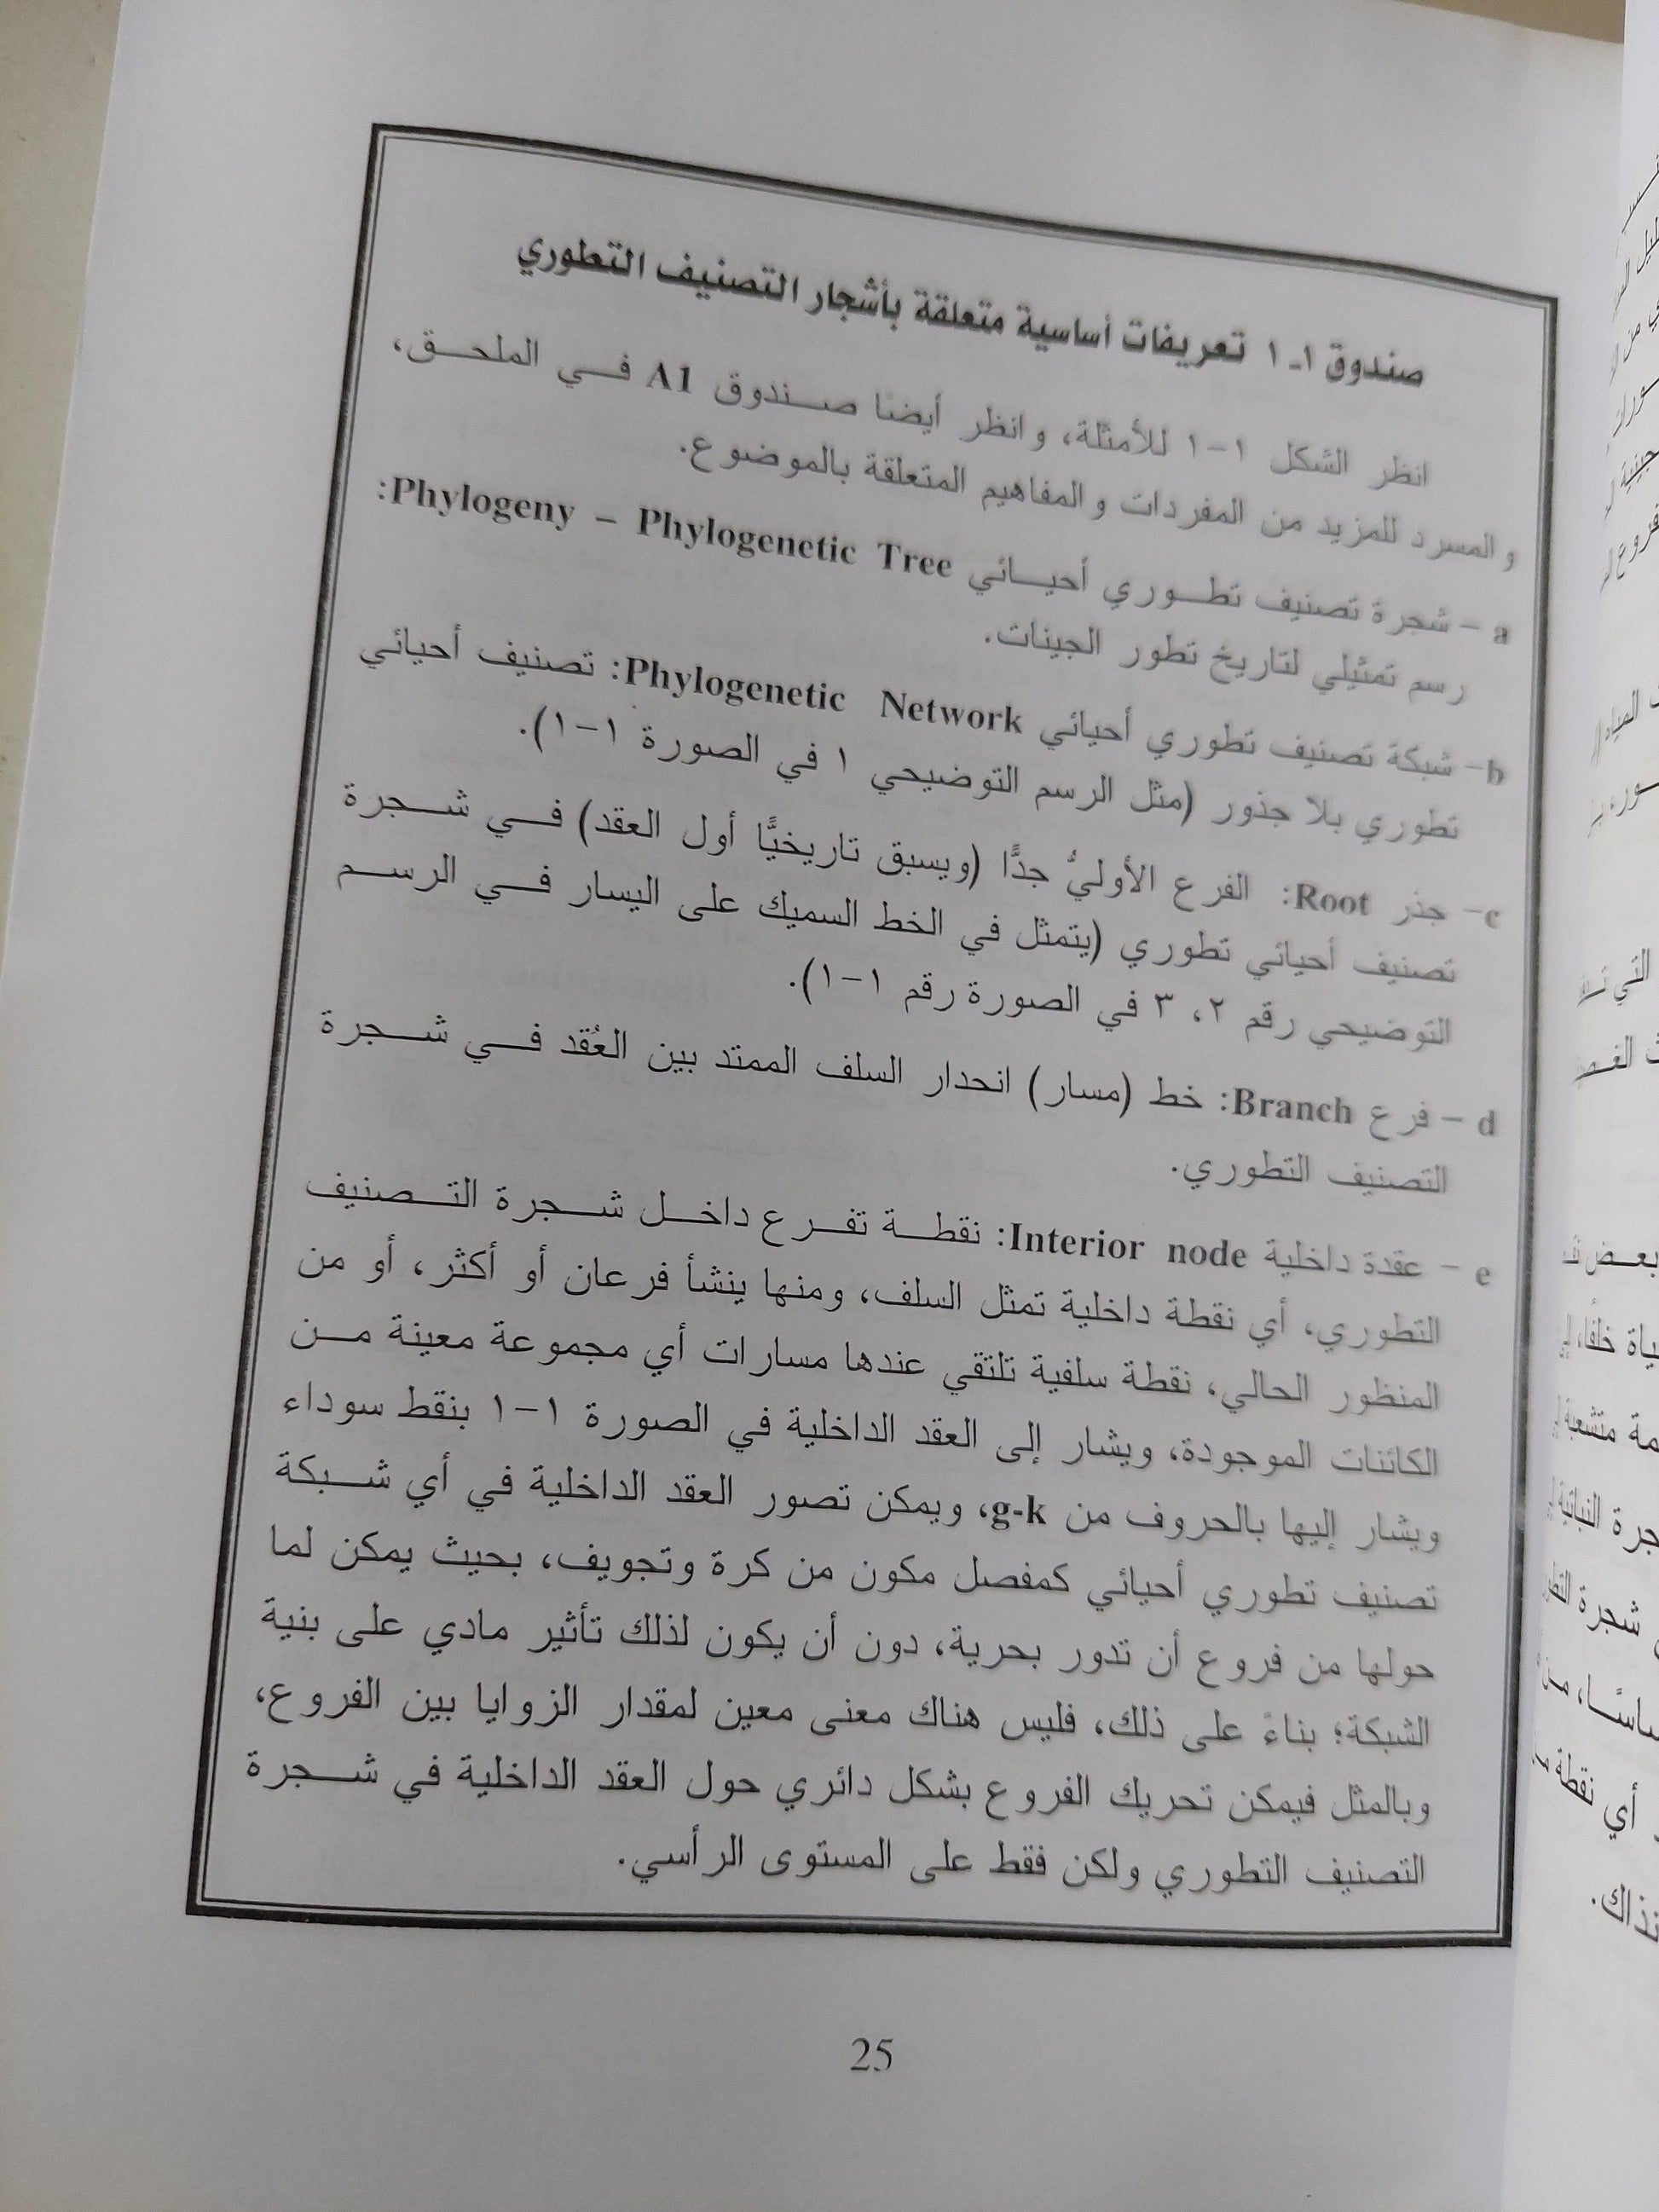 صندوق ١ـ١ تعريفات أساسية متعلقة بأشجار التصنيف التطوري
انظر الشكل ١-١ للأمثلة، وانظر أيضا صندوق A1 في الملحق،
والمسرد للمزيد من المفردات والمفاهيم المتعلقة بالموضوع.
a – شجرة تصنيف تطوري أحيائي Phylogeny – Phylogenetic Tree:
رسم تمثيلي لتاريخ تطور الجينات.
b- شبكة تصنيف تطوري أحيائي Phylogenetic Network: تصنيف أحيائي
تطوري بلا جذور (مثل الرسم التوضيحي ١ في الصورة ١-١).
c- جذر Root: الفرع الأوليُّ جدًّا (ويسبق تاريخيًّا أول العقد) في شجرة
تصنيف أحيائي تطوري (يتمثل في الخط السميك على اليسار في الرسم
التوضيحي رقم ٢، ٣ في الصورة رقم ١-١).
d – فرع Branch: خط (مسار) انحدار السلف الممتد بين العُقد في شجرة
التصنيف التطوري.
e – عقدة داخلية Interior node: نقطة تفرع داخل شجرة التصنيف
التطوري، أي نقطة داخلية تمثل السلف، ومنها ينشأ فرعان أو أكثر، أو من
المنظور الحالي، نقطة سلفية تلتقي عندها مسارات أي مجموعة معينة من
الكائنات الموجودة، ويشار إلى العقد الداخلية في الصورة ١-١ بنقط سوداء
ويشار إليها بالحروف من g-k، ويمكن تصور العقد الداخلية في أي شبكة
تصنيف تطوري أحيائي كمفصل مكون من كرة وتجويف، بحيث يمكن لما
حولها من فروع أن تدور بحرية، دون أن يكون لذلك تأثير مادي على بنية
الشبكة؛ بناءً على ذلك، فليس هناك معنى معين لمقدار الزوايا بين الفروع،
وبالمثل فيمكن تحريك الفروع بشكل دائري حول العقد الداخلية في شجرة
التصنيف التطوري ولكن فقط على المستوى الرأسي.
25